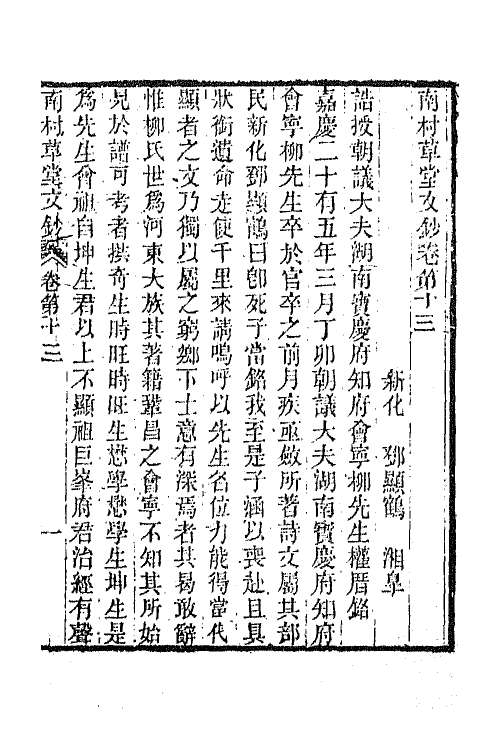 南村草堂文鈔卷第十三
新化　鄧顯鶴　湘皐
誥授朝議大夫湖南寶慶府知府會寧柳先生權厝銘
嘉慶二十有五年三月丁卯朝議大夫湖南寶慶府知府
會寧柳先生卒於官卒之前月疾亟斂所著詩文屬其部
民新化鄧顯鶴曰卽死子當銘我至是子涵以喪赴且具
狀銜遺命走使千里來請嗚呼以先生名位力能得當代
顯者之文乃獨以屬之窮鄉下士意有深焉者其曷敢辭
惟柳氏世爲河東大族其著籍鞏昌之會寧不知其所始
見於譜可考者拱奇生時旺時旺生懋學懋學生坤生是
爲先生曾祖自坤生君以上不顯祖巨峯府君治經有聲
南村草堂文鈔　卷第十三　一